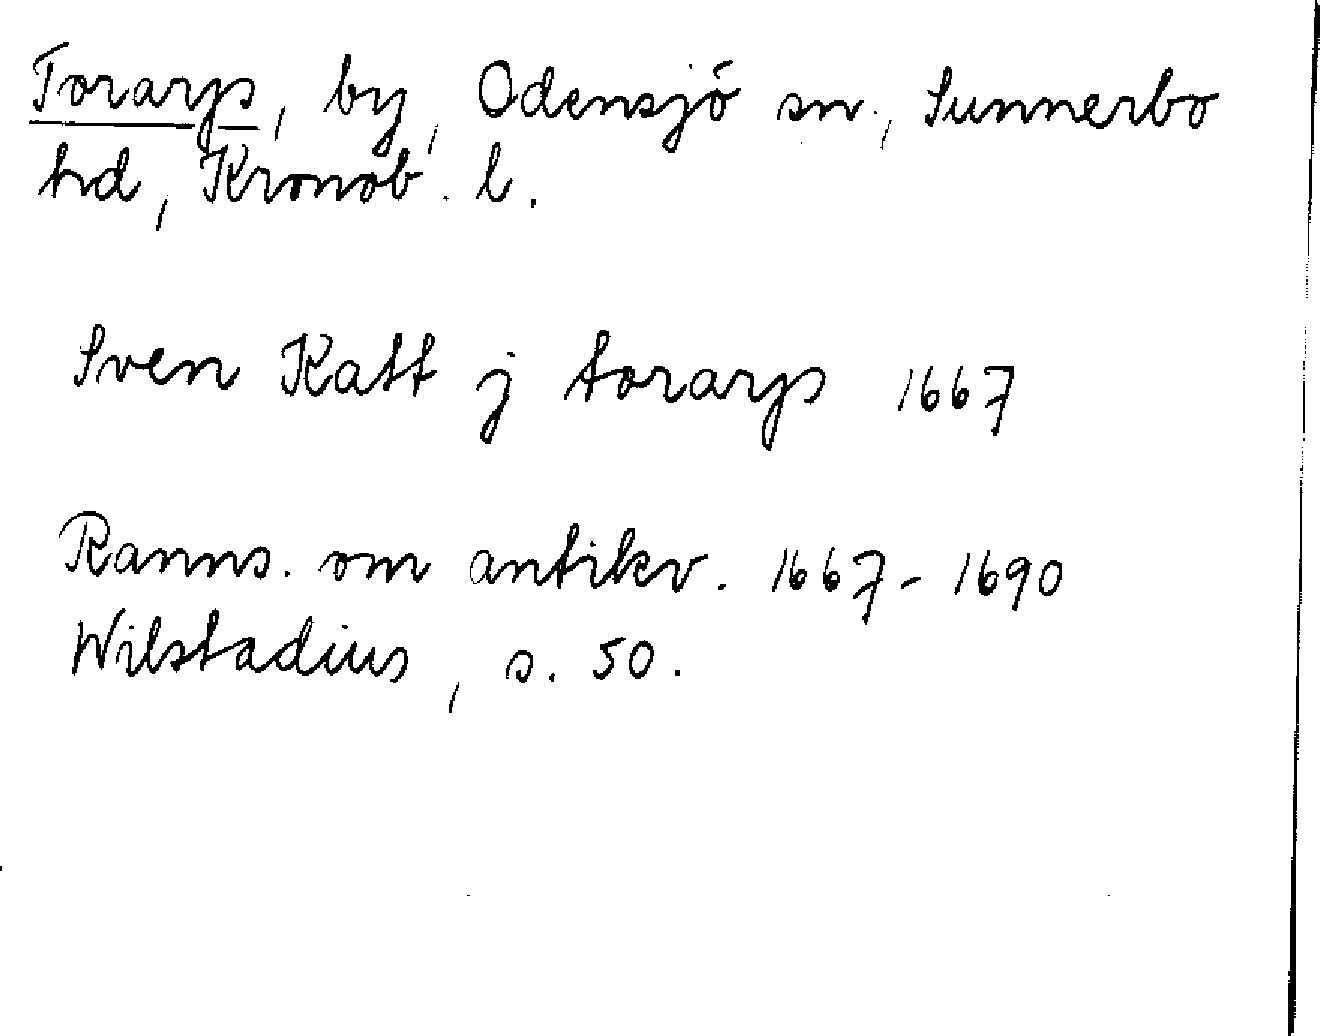 Torarys, by, Odensjö sn., Sunnerbo
hd, Kronob. l.
Sven Katt j torarys 1667
Ranns. om antikv. 1667-1690
Wilstadius, s. 50.